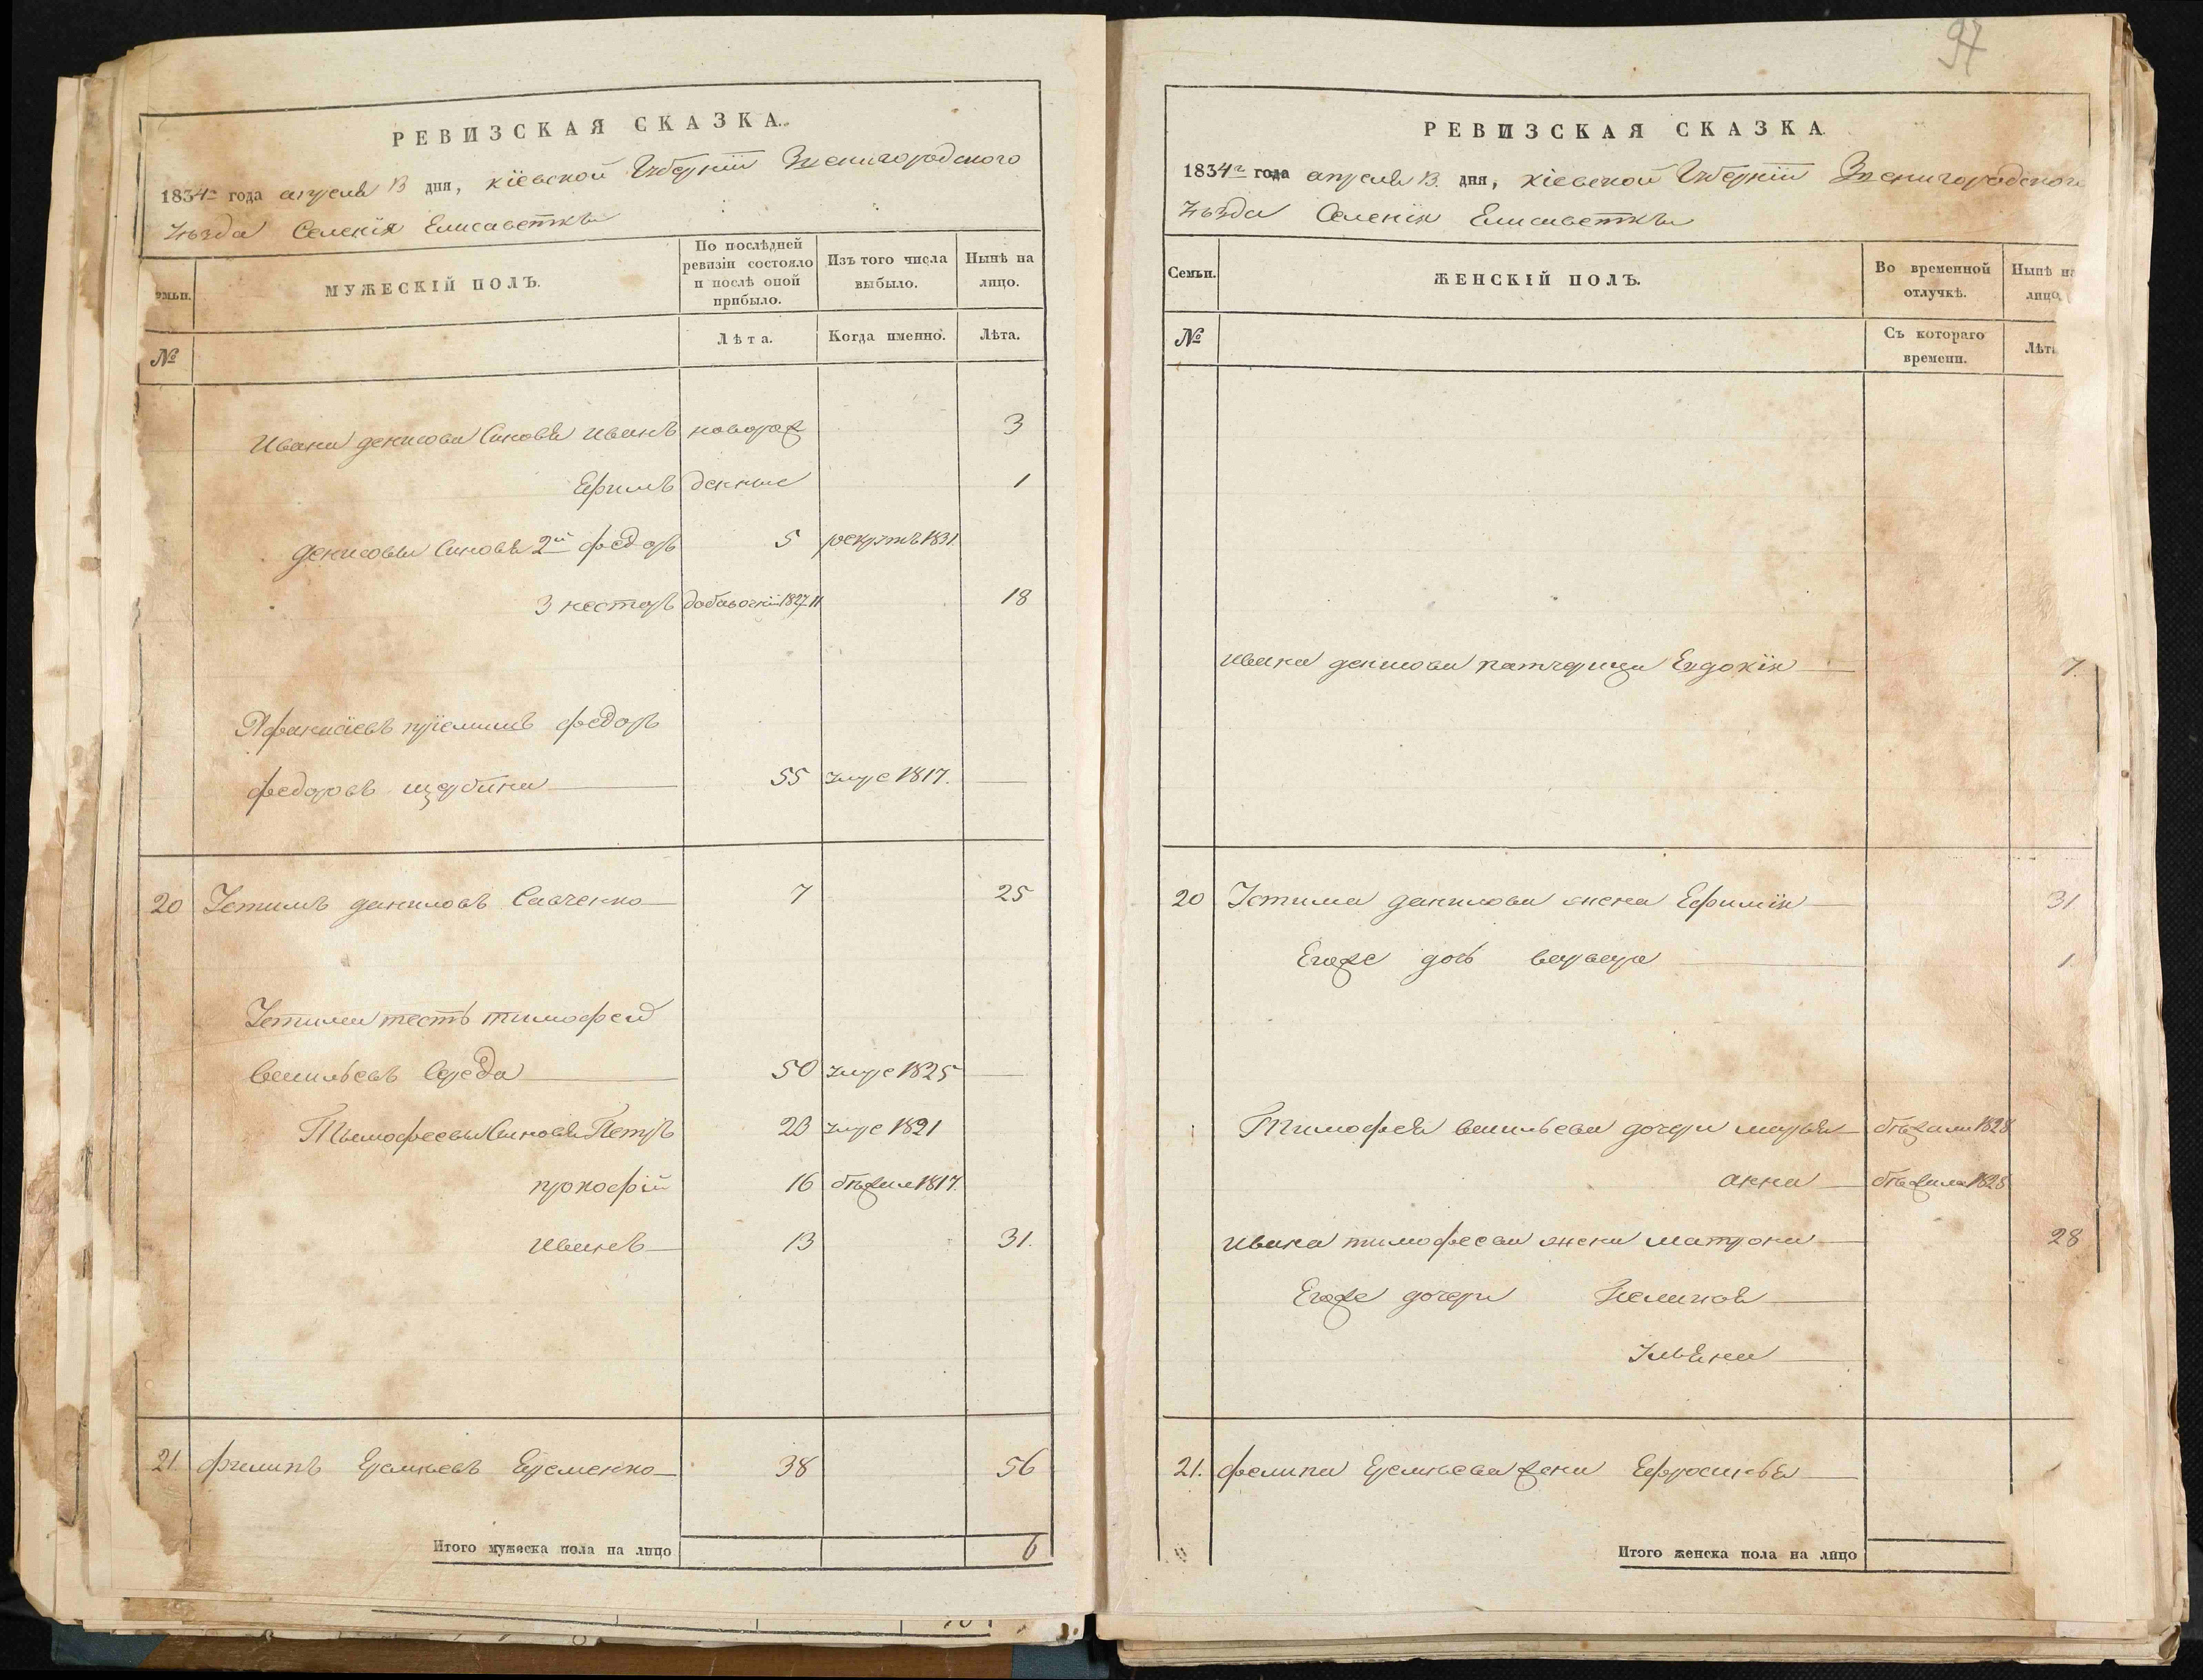 РЕВИЗСКАЯ СКАЗКА.
1834го года апреля 13 дня, Кіевской Губерніи Звенигородскаго
Уѣзда Селенія Елисаветки
емьи.
МУЖЕСКІЙ ПОЛЪ.
По послѣдней ревизіи состояло и послѣ оной прибыло.
Изъ того числа выбыло.
Нынѣ на лицо.
№
Лѣта.
Когда именно.
Лѣта.
Ивана денисова Синовя иванъ новорож 3
Ефимъ денные 1
денисовы Синовя 2й федоръ 5 рекрутъ 1831.
3 несторъ добавочній 1827 11 18
Афанасіевъ пріемишъ федоръ
федоровъ щербина 55 умре 1817.
20 Устимъ даниловъ Савченко 7 25
Устима тесть тимофей
васильевъ Середа 50 умре 1825
Тимофеевы Синовя Петръ 23 умре 1821
прокофій 16 бѣжал 1817.
иванъ 13 31.
21. филипъ Еремѣевъ Еременко 38 56
Итого мужеска пола на лицо 6
97
РЕВИЗСКАЯ СКАЗКА.
1834го года апреля 13. дня, Кіевской Губерніи Звенигородского
Уѣзда Селенія Елисаветки
Семьи.
ЖЕНСКІЙ ПОЛЪ.
Во временной отлучкѣ.
Нынѣ на лицо.
№
Съ котораго времени.
Лѣта
ивана денисова патчерица Евдокія 7.
20 Устима данилова жена Ефимія 31
Егоже дочь варвара 1.
Тимофея васильева дочери маръя бѣжала 1828
анна бѣжала 1828
ивана тимофеева жена матрона 28
Егоже дочери Пелагея
Ульяна
21. филипа Еремѣева жена Ефросинья
Итого женска пола на лицо